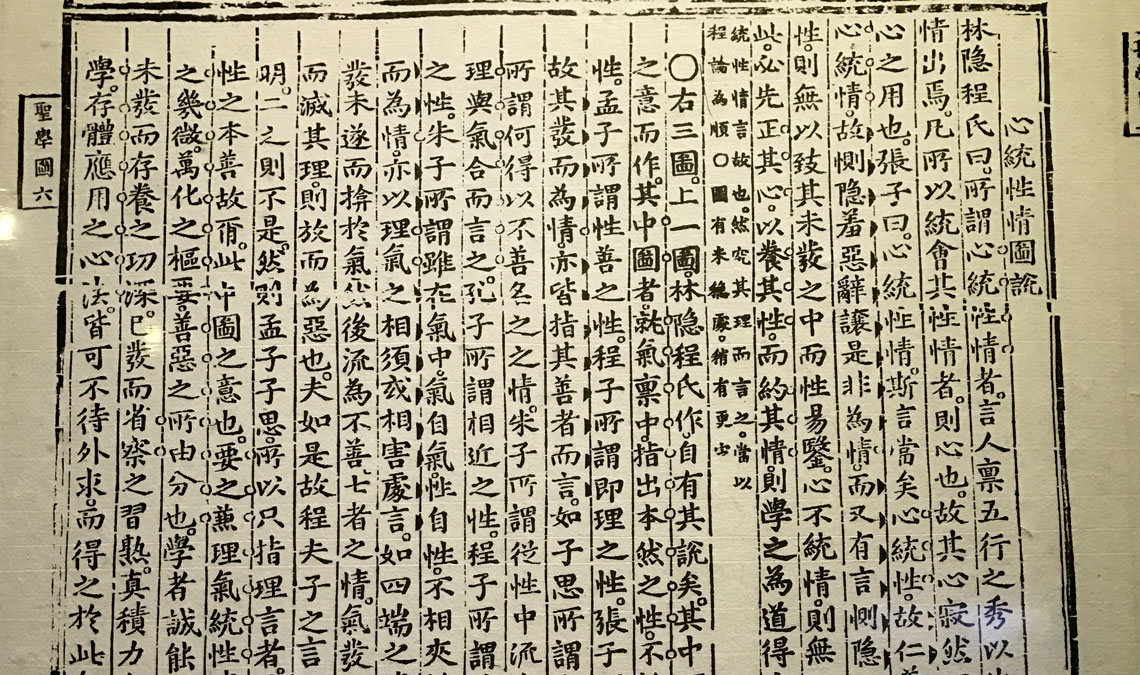 心統性情圖說
林隐程氏曰。所謂心統性情者。言人禀五行之秀以
情出焉。凡所以統會其性情者。則心也。故其心寂然
心之用也。張子曰。心統性情。斯言當矣。心統性。故仁
心統情。故惻隐羞惡辭讓是非為情。而又有言惻隐
性。則無以致其未發之中而性易鑿。心不統情。則無
此。必先正其心。以養其性。而約其情。則學之為道得
統性情言故也。然究其理而言之。當以
程論為順○圖有未穩處。稍有更
○右三圖。上一圖。林隐程氏作。自有其說矣。其中
之意而作。其中圖者。就氣禀中。指出本然之性。不
性。孟子所謂性善之性。程子所謂即理之性。張子
故其發而為情。亦皆指其善者而言。如子思所謂
所謂何得以不善名之之情。朱子所謂従性中流
理與氣合而言之。孔子所謂相近之性。程子所謂
之性。朱子所謂雖在氣中。氣自氣性自性。不相夾
而為情。亦以理氣之相須或相害處言。如四端之
發未遂而揜於氣然後流為不善。七者之情。氣發
而滅其理。則放而為惡也。夫如是故程夫子之言
明。二之則不是。然則孟子子思。所以只指理言者。
性之本善故爾。此中圖之意也。要之兼理氣統性
之幾微。萬化之樞要。善惡之所由分也。學者誠能
未發而存養之功深。已發而省察之習熟。真積力
學。存體應用之心法。皆可不待外求。而得之於此
聖學圖六